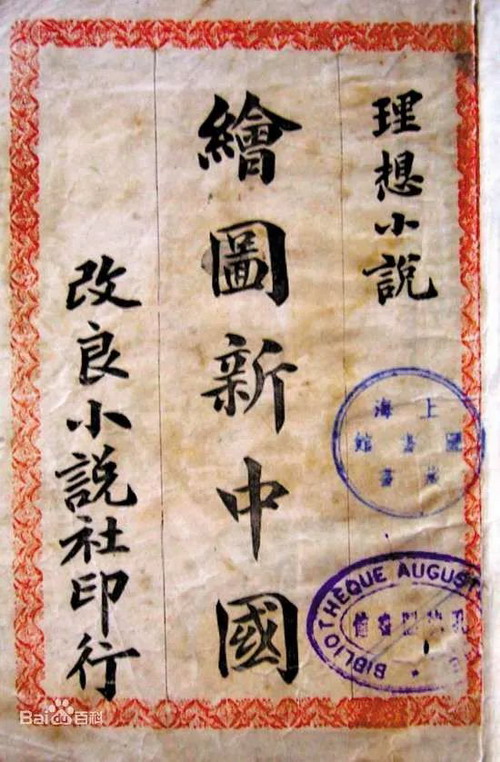 理想小說
繪圖新中國
改良小說社印行
上海
圖書館
藏書
BIBLIOTHÈQUE AUGUST
Bai百科